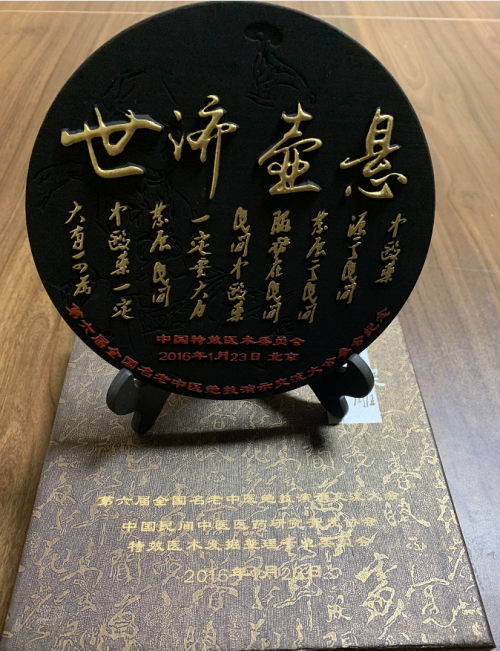 悬壶济世
中医药
源于民间
发展于民间
服务在民间
民间中医药
一定要大力
发展民间
中医药一定
大有可为
中国特效医术委员会
2016年1月23日 北京
第六届全国名老中医绝技演示交流大会纪念
第六届全国名老中医绝技演示交流大会
中国民间中医医药研究开发协会
特效医术发掘整理专业委员会
2016年1月23日